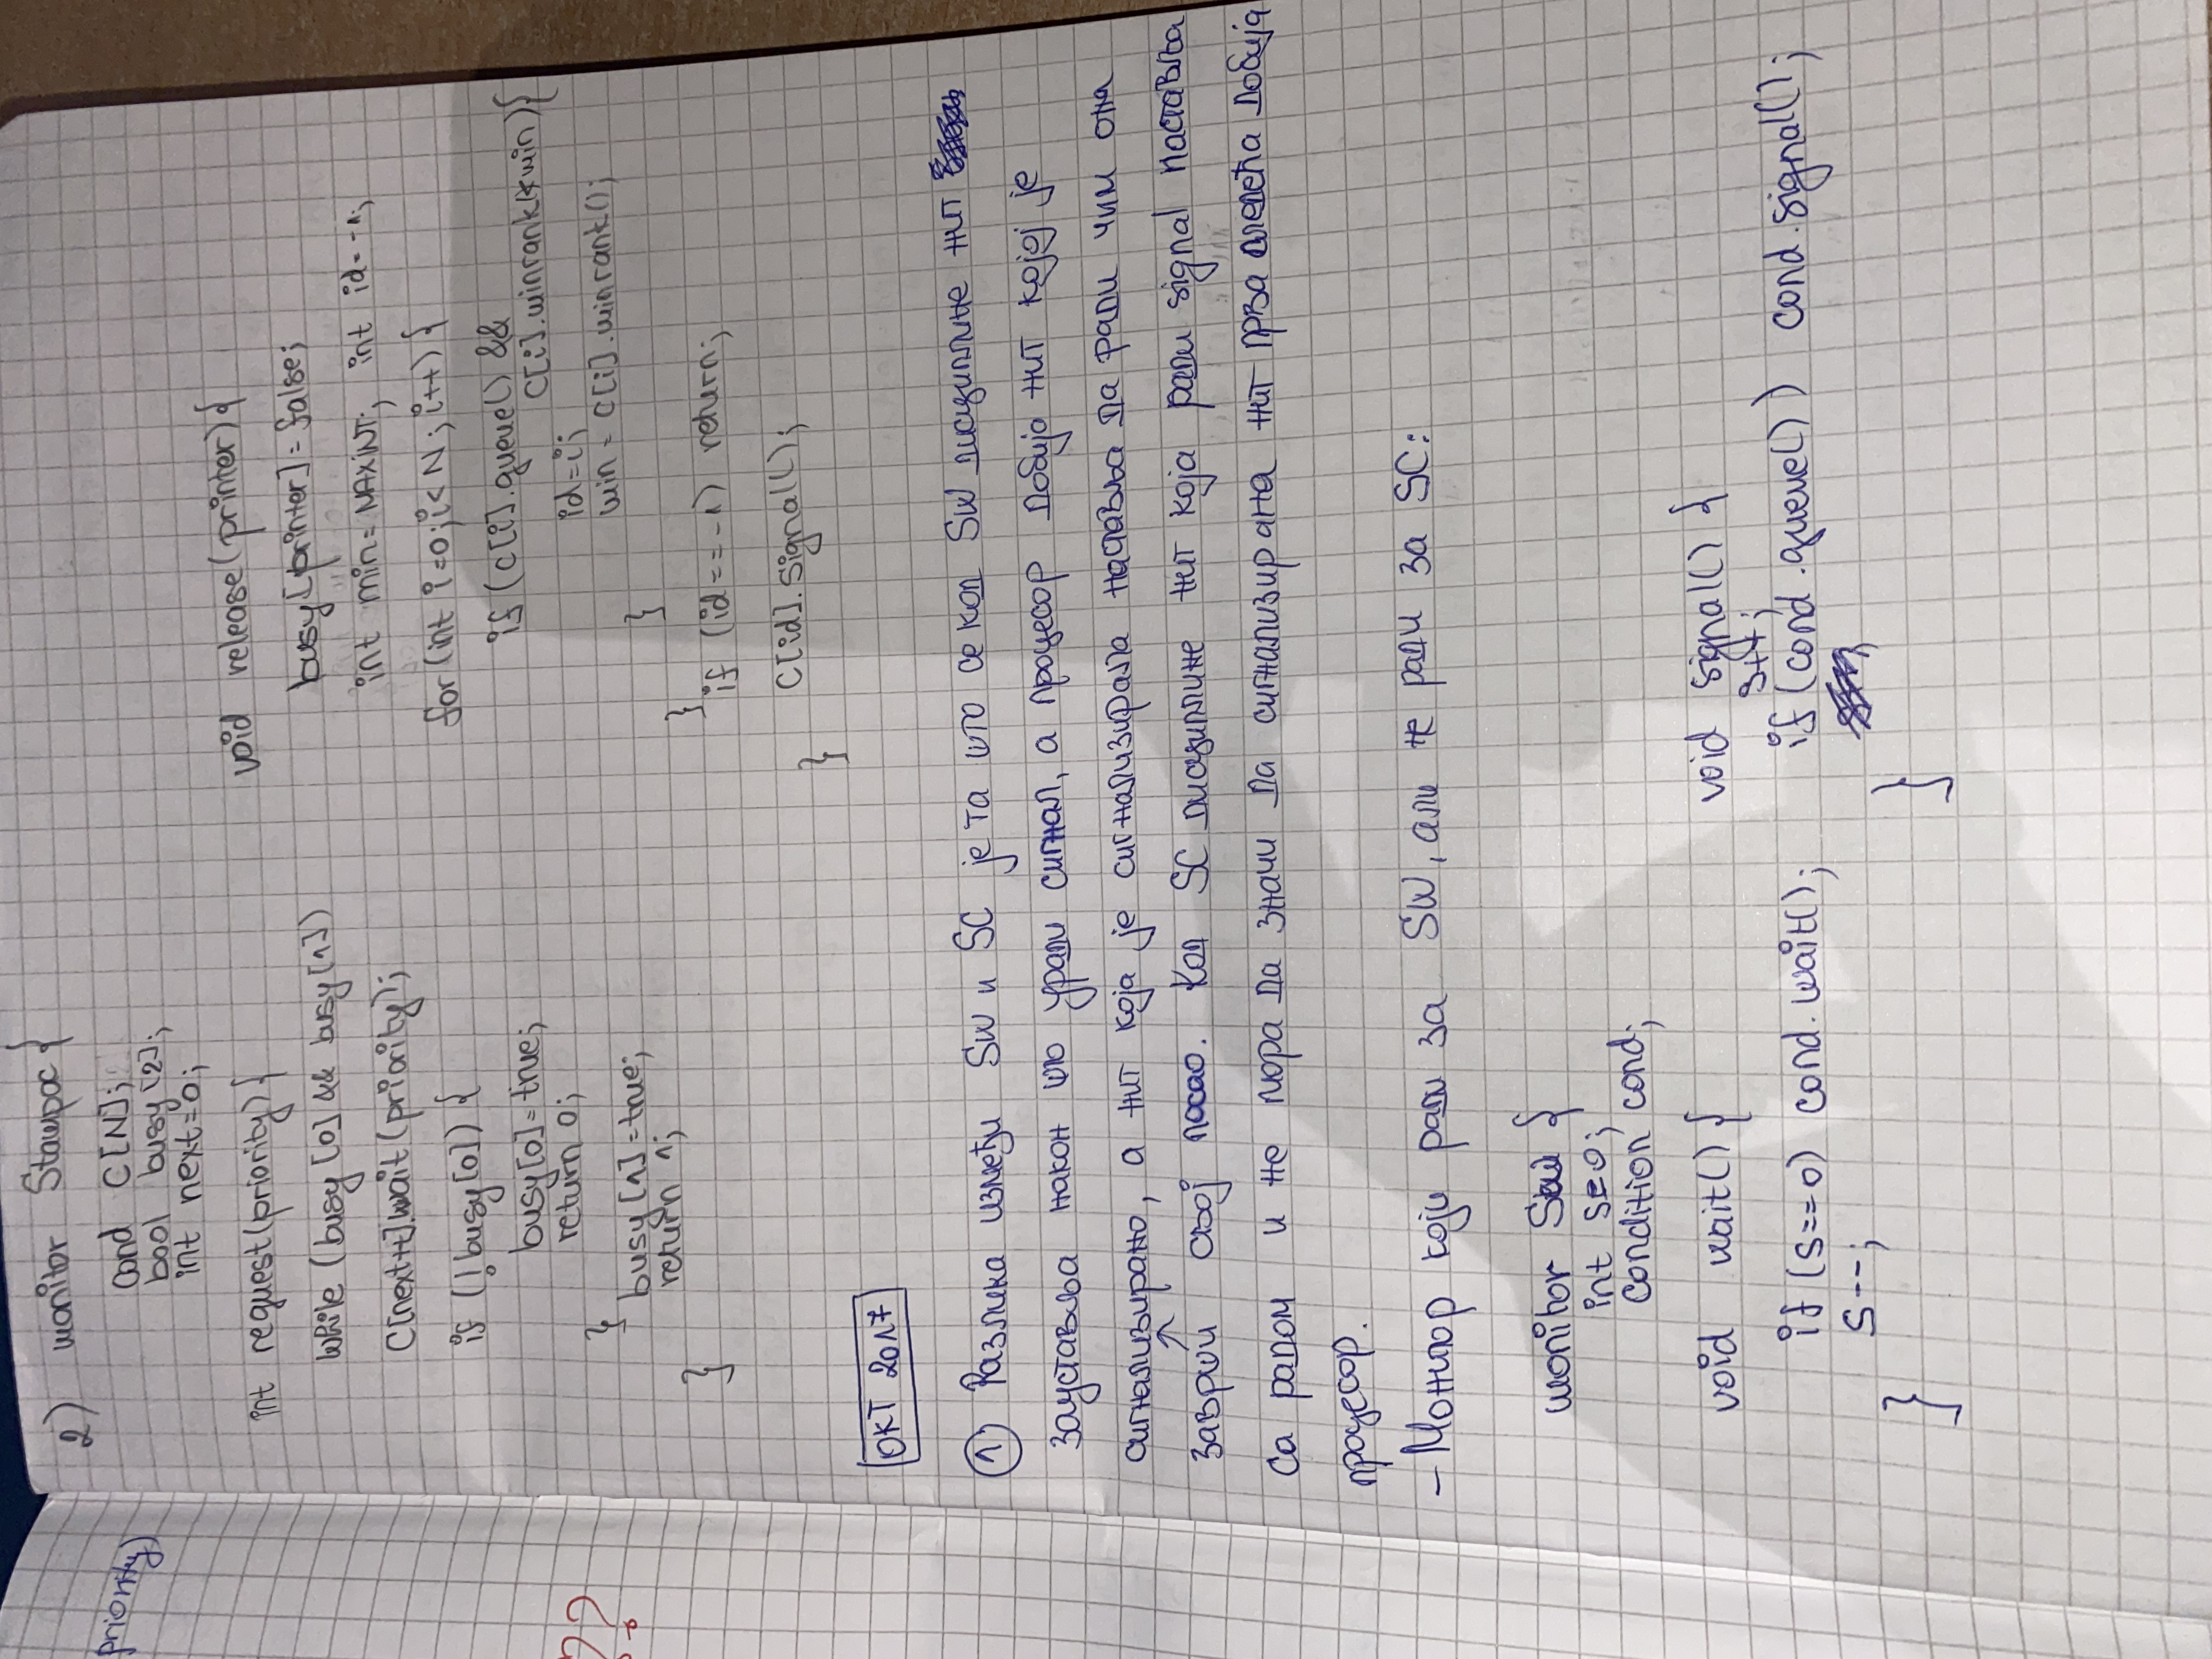 priority)
??
2) monitor Stampac {
cond C[N];
bool busy[2];
int next=0;
int request(priority){
while (busy[0] && busy[1])
C[next++].wait(priority);
if (!busy[0]) {
busy[0]=true;
return 0;
}
busy[1]=true;
return 1;
}
void release(printer){
busy[printer]=false;
int min=MAXINT; int id=-1;
for(int i=0;i<N;i++){
if (C[i].queue() &&
C[i].minrank()<min){
id=i;
min = C[i].minrank();
}
}
if (id==-1) return;
C[id].signal();
}
ОКТ 2017
① Разлика између SW и SC је та што се код SW дисциплине нит
зауставља након што уради сигнал, а процесор добија нит којој је
сигнализирано, а нит која је сигнализирала наставља да ради чим она
заврши свој посао. Код SC дисциплине нит која ради signal наставља
са радом и не мора да значи да сигнализирана нит прва следећа добија
процесор.
- Монитор који ради за SW, али не ради за SC:
monitor {
int s=0;
condition cond;
void wait(){
if (s==0) cond.wait();
s--;
}
void signal() {
s++;
if(cond.queue()) cond.signal();
}